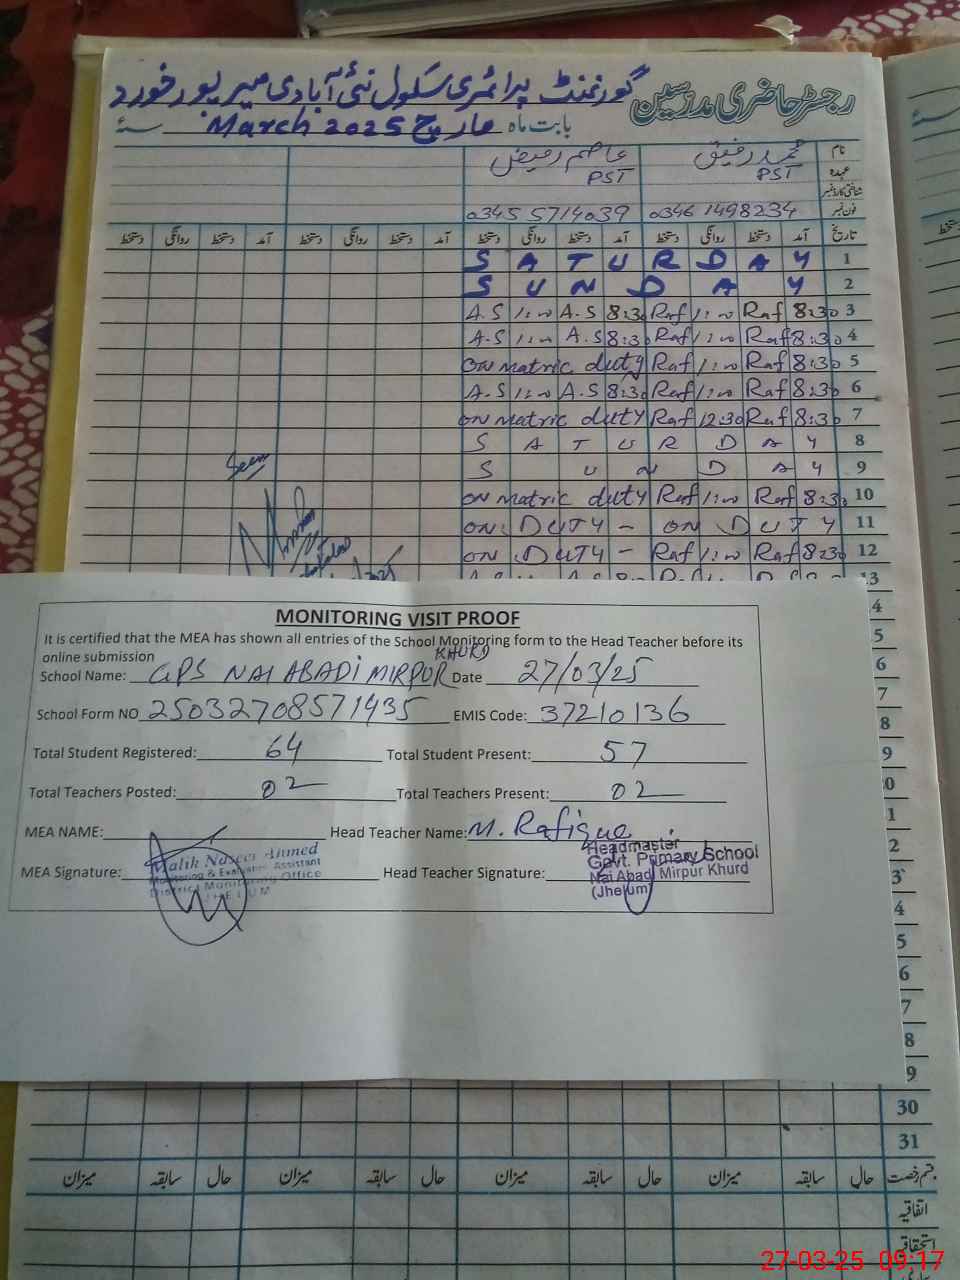 رجسٹر حاضری مدرسین گورنمنٹ پرائمری سکول نئی آبادی میرپور خورد
بابت ماہ مارچ March 2025 سنہ
نام محمد رفیق عاصم رمیض
عہدہ PST PST
شناختی کارڈ نمبر
فون نمبر 0346 1498234 0345 5714039
تاریخ آمد دستخط روانگی دستخط آمد دستخط روانگی دستخط آمد دستخط روانگی دستخط آمد دستخط روانگی دستخط
S A T U R D A Y 1
S U N D A Y 2
A.S 1:00 A.S 8:30 Raf 1:00 Raf 8:30 3
A.S 1:00 A.S 8:30 Raf 1:00 Raf 8:30 4
ON matric duty Raf 1:00 Raf 8:30 5
A.S 1:00 A.S 8:30 Raf 1:00 Raf 8:30 6
ON matric duty Raf 12:30 Raf 8:30 7
S A T U R D A Y 8
Seen S U N D A Y 9
ON matric duty Raf 1:00 Raf 8:30 10
ON DUTY - ON DUTY 11
ON DUTY - Raf 1:00 Raf 8:30 12
13
MONITORING VISIT PROOF
It is certified that the MEA has shown all entries of the School Monitoring form to the Head Teacher before its
online submission
School Name: GPS NAI ABADI MIRPUR KHURD Date 27/03/25
School Form NO 25032708571435 EMIS Code: 37210136
Total Student Registered: 64 Total Student Present: 57
Total Teachers Posted: 02 Total Teachers Present: 02
MEA NAME: Head Teacher Name: M. Rafique
MEA Signature: Head Teacher Signature:
Malik Naseer Ahmed
Monitoring & Evaluation Assistant
District Monitoring Office
JHELUM
Headmaster
Govt. Primary School
Nai Abadi Mirpur Khurd
(Jhelum)
4
5
6
7
8
9
0
1
2
3
4
5
6
7
8
9
30
31
قسم رخصت حال سابقہ میزان حال سابقہ میزان حال سابقہ میزان حال سابقہ میزان
اتفاقیہ
استحقاقی
27-03-25 09:17